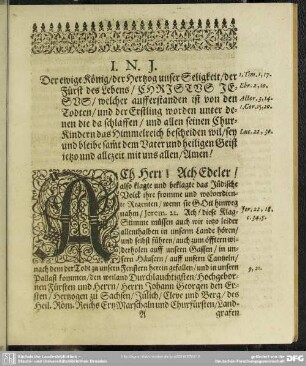 I. N. J.
Der ewige König/der Hertzog unser Seligkeit/der
Fürst des Lebens/ CHRISTUS JE-
SUS/ welcher aufferstanden ist von den
Todten/ und der Erstling worden unter de-
nen die da schlaffen/ und allen seinen Chur-
Kindern das Himmelreich bescheiden wil/sey
und bleibe samt dem Vater und heiligen Geist
itzo und allezeit mit uns allen/Amen!
1. Tim. 1, 17.
Ebr. 2, 10.
Actor. 3, 14.
1. Cor. 15, 20.
Luc. 22, 30.
ACh Herr! Ach Edeler/
also klagte und beklagte das Jüdische
Volck ihre fromme und wolverdien-
te Regenten/ wenn sie GOtt hinweg
nahm/ Jerem. 22. Ach/ diese Klag-
Stimme müssen auch wir itzo leider
allenthalben in unserm Lande hören/
und selbst führen/ auch zum öfftern wi-
derholen auff unsern Gassen/ in un-
sern Häusern/ auff unsern Cantzeln/
nach dem der Todt zu unsern Fenstern herein gefallen/ und in unsern
Pallast kommen/ den weiland Durchlauchtigsten/ Hochgebor-
nen Fürsten und Herrn/ Herrn Johann Georgen den Er-
sten/ Hertzogen zu Sachsen/ Jülich/ Cleve und Berg/ des
Heil. Röm. Reichs Ertz Marschaln und Churfürsten/ Land-
Jer. 22, 18.
9, 21.
A
grafen